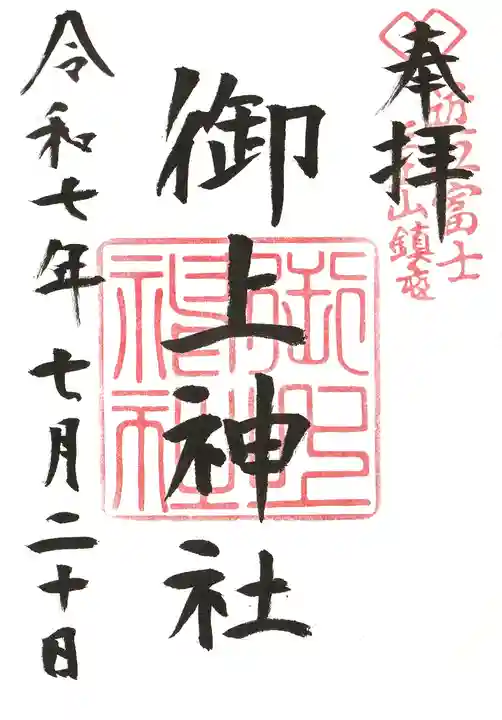 奉拝
近江富士
三上山鎮座
御上神社
御上神社
令和七年七月二十日